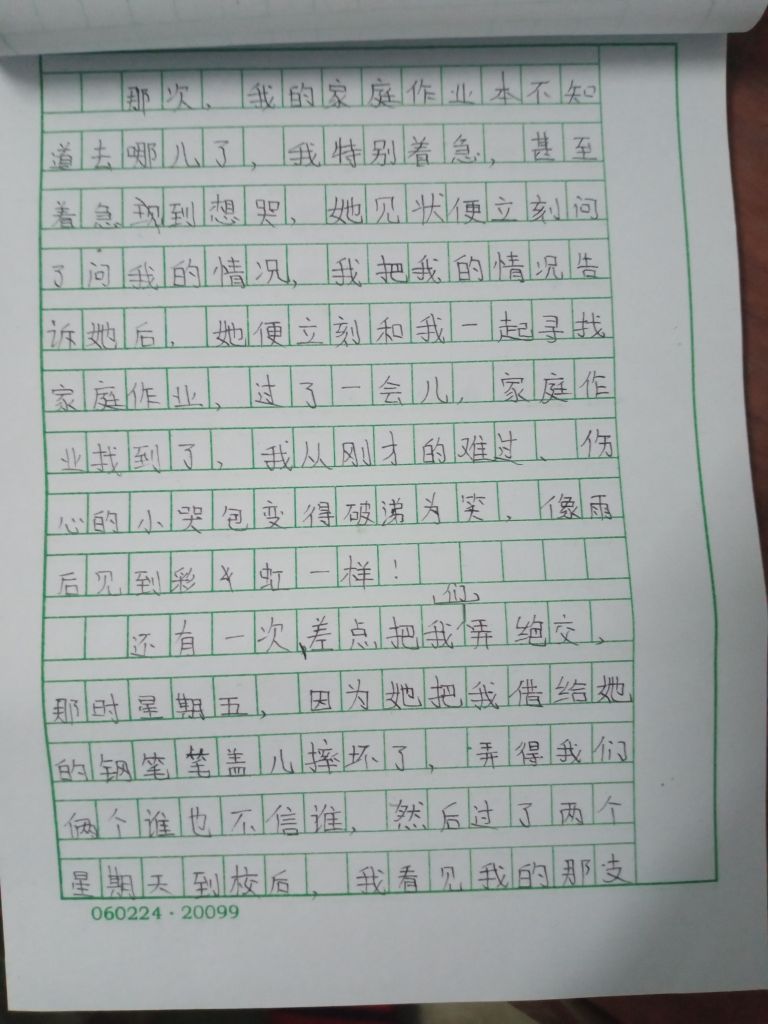 那次、我的家庭作业本不知
道去哪儿了，我特别着急，甚至
着急到想哭、她见状便立刻问
了问我的情况，我把我的情况告
诉她后，她便立刻和我一起寻找
家庭作业，过了一会儿，家庭作
业找到了，我从刚才的难过、伤
心的小哭包变得破涕为笑，像雨
后见到彩虹一样！
还有一次，差点把我们弄绝交、
那时星期五，因为她把我借给她
的钢笔笔盖儿摔坏了，弄得我们
俩个谁也不信谁，然后过了两个
星期天到校后，我看见我的那支
060224·20099